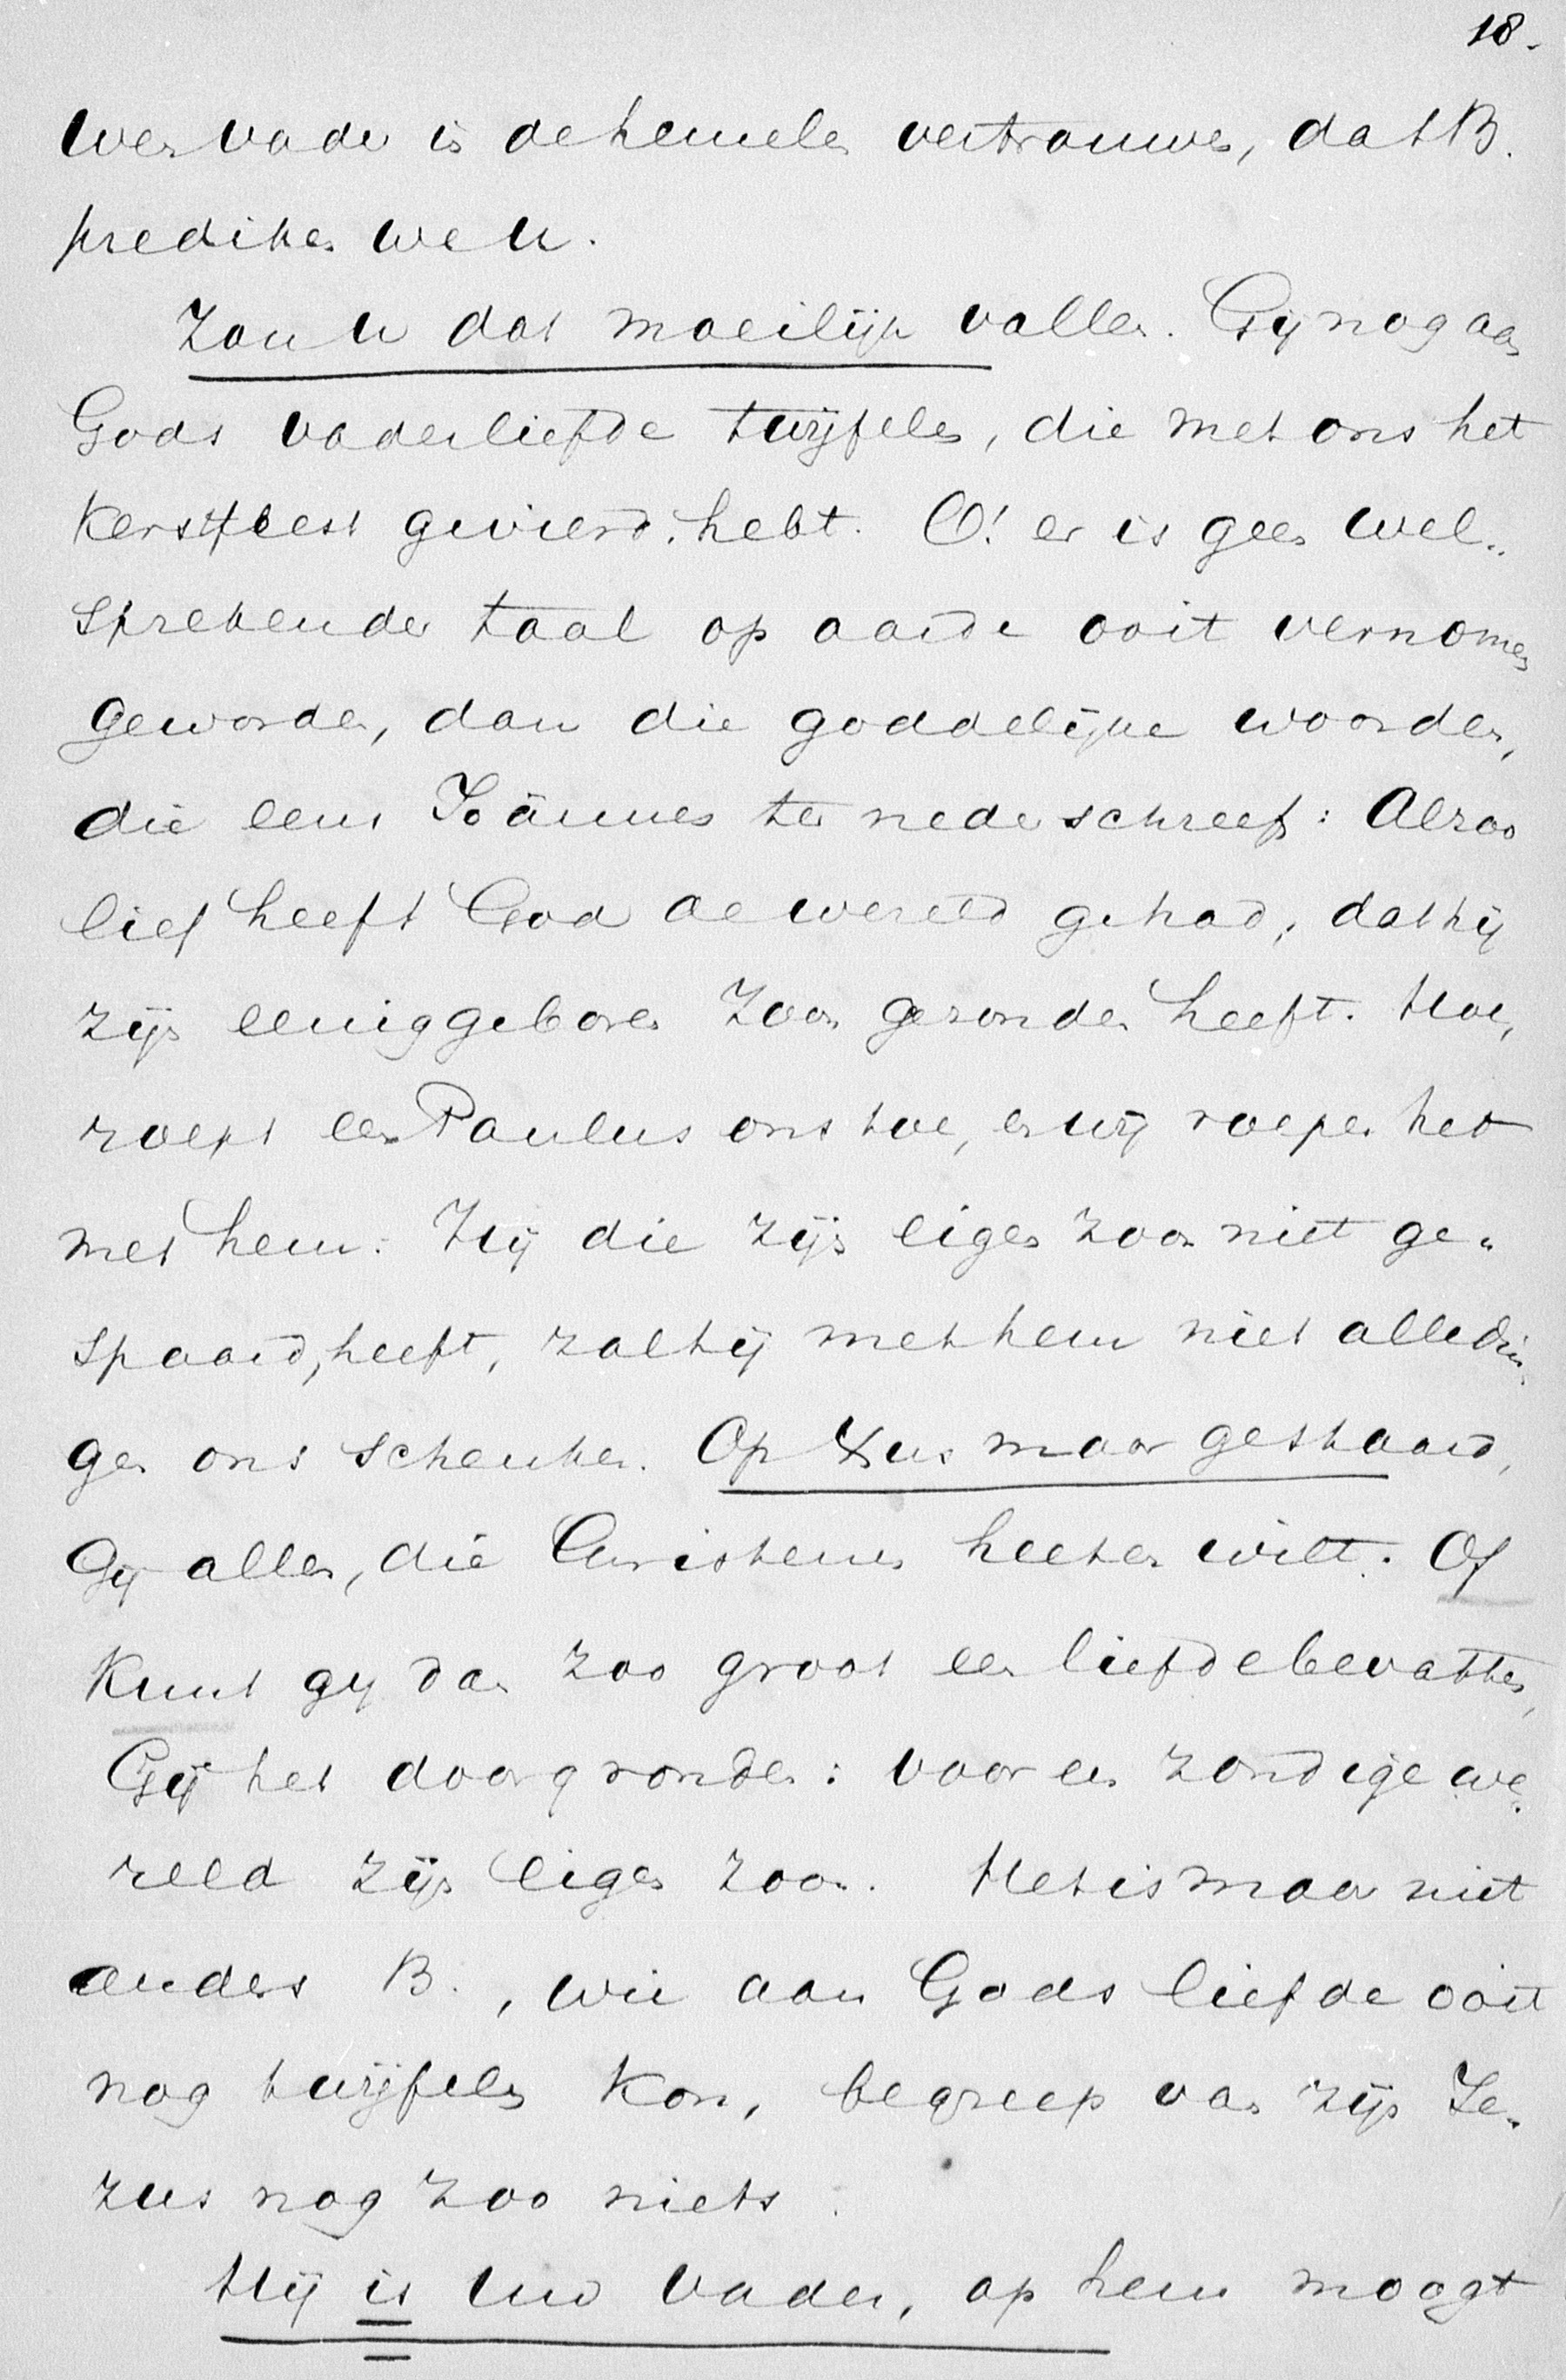 18.
wen vader in de hemelen vertrouwen, dat B.
prediken we U.
Zou U dat moeilijk vallen. Gij nog aan
Gods vaderliefde twijfelen, die met ons het
Kerstfeest gevierd hebt. O! er is geen wel-
sprekender taal op aarde ooit vernomen
geworden, dan die goddelijke woorden,
die eens Joännes ter neder schreef: Alzoo
lief heeft God de wereld gehad, dat hij
zijn eeniggeboren Zoon gezonden heeft. Hoe,
roept een Paulus ons toe, en wij roepen het
met hem: Hij die zijn eigen zoon niet ge-
spaard, heeft, zal hij met hem niet alle din
gen ons schenken. Op Xus maar gestaard,
Gij allen, die Christenen heeten wilt. Of
kunt gij dan zoo groot een liefde bevatten,
Gij het doorgronden: voor een zondige we-
reld zijn eigen zoon. Het is maar niet
anders B., wie aan Gods liefde ooit
nog twijfelen kon, begreep van zijn Je-
zus nog zoo niets.
Hij is uw Vader, op hem moogt